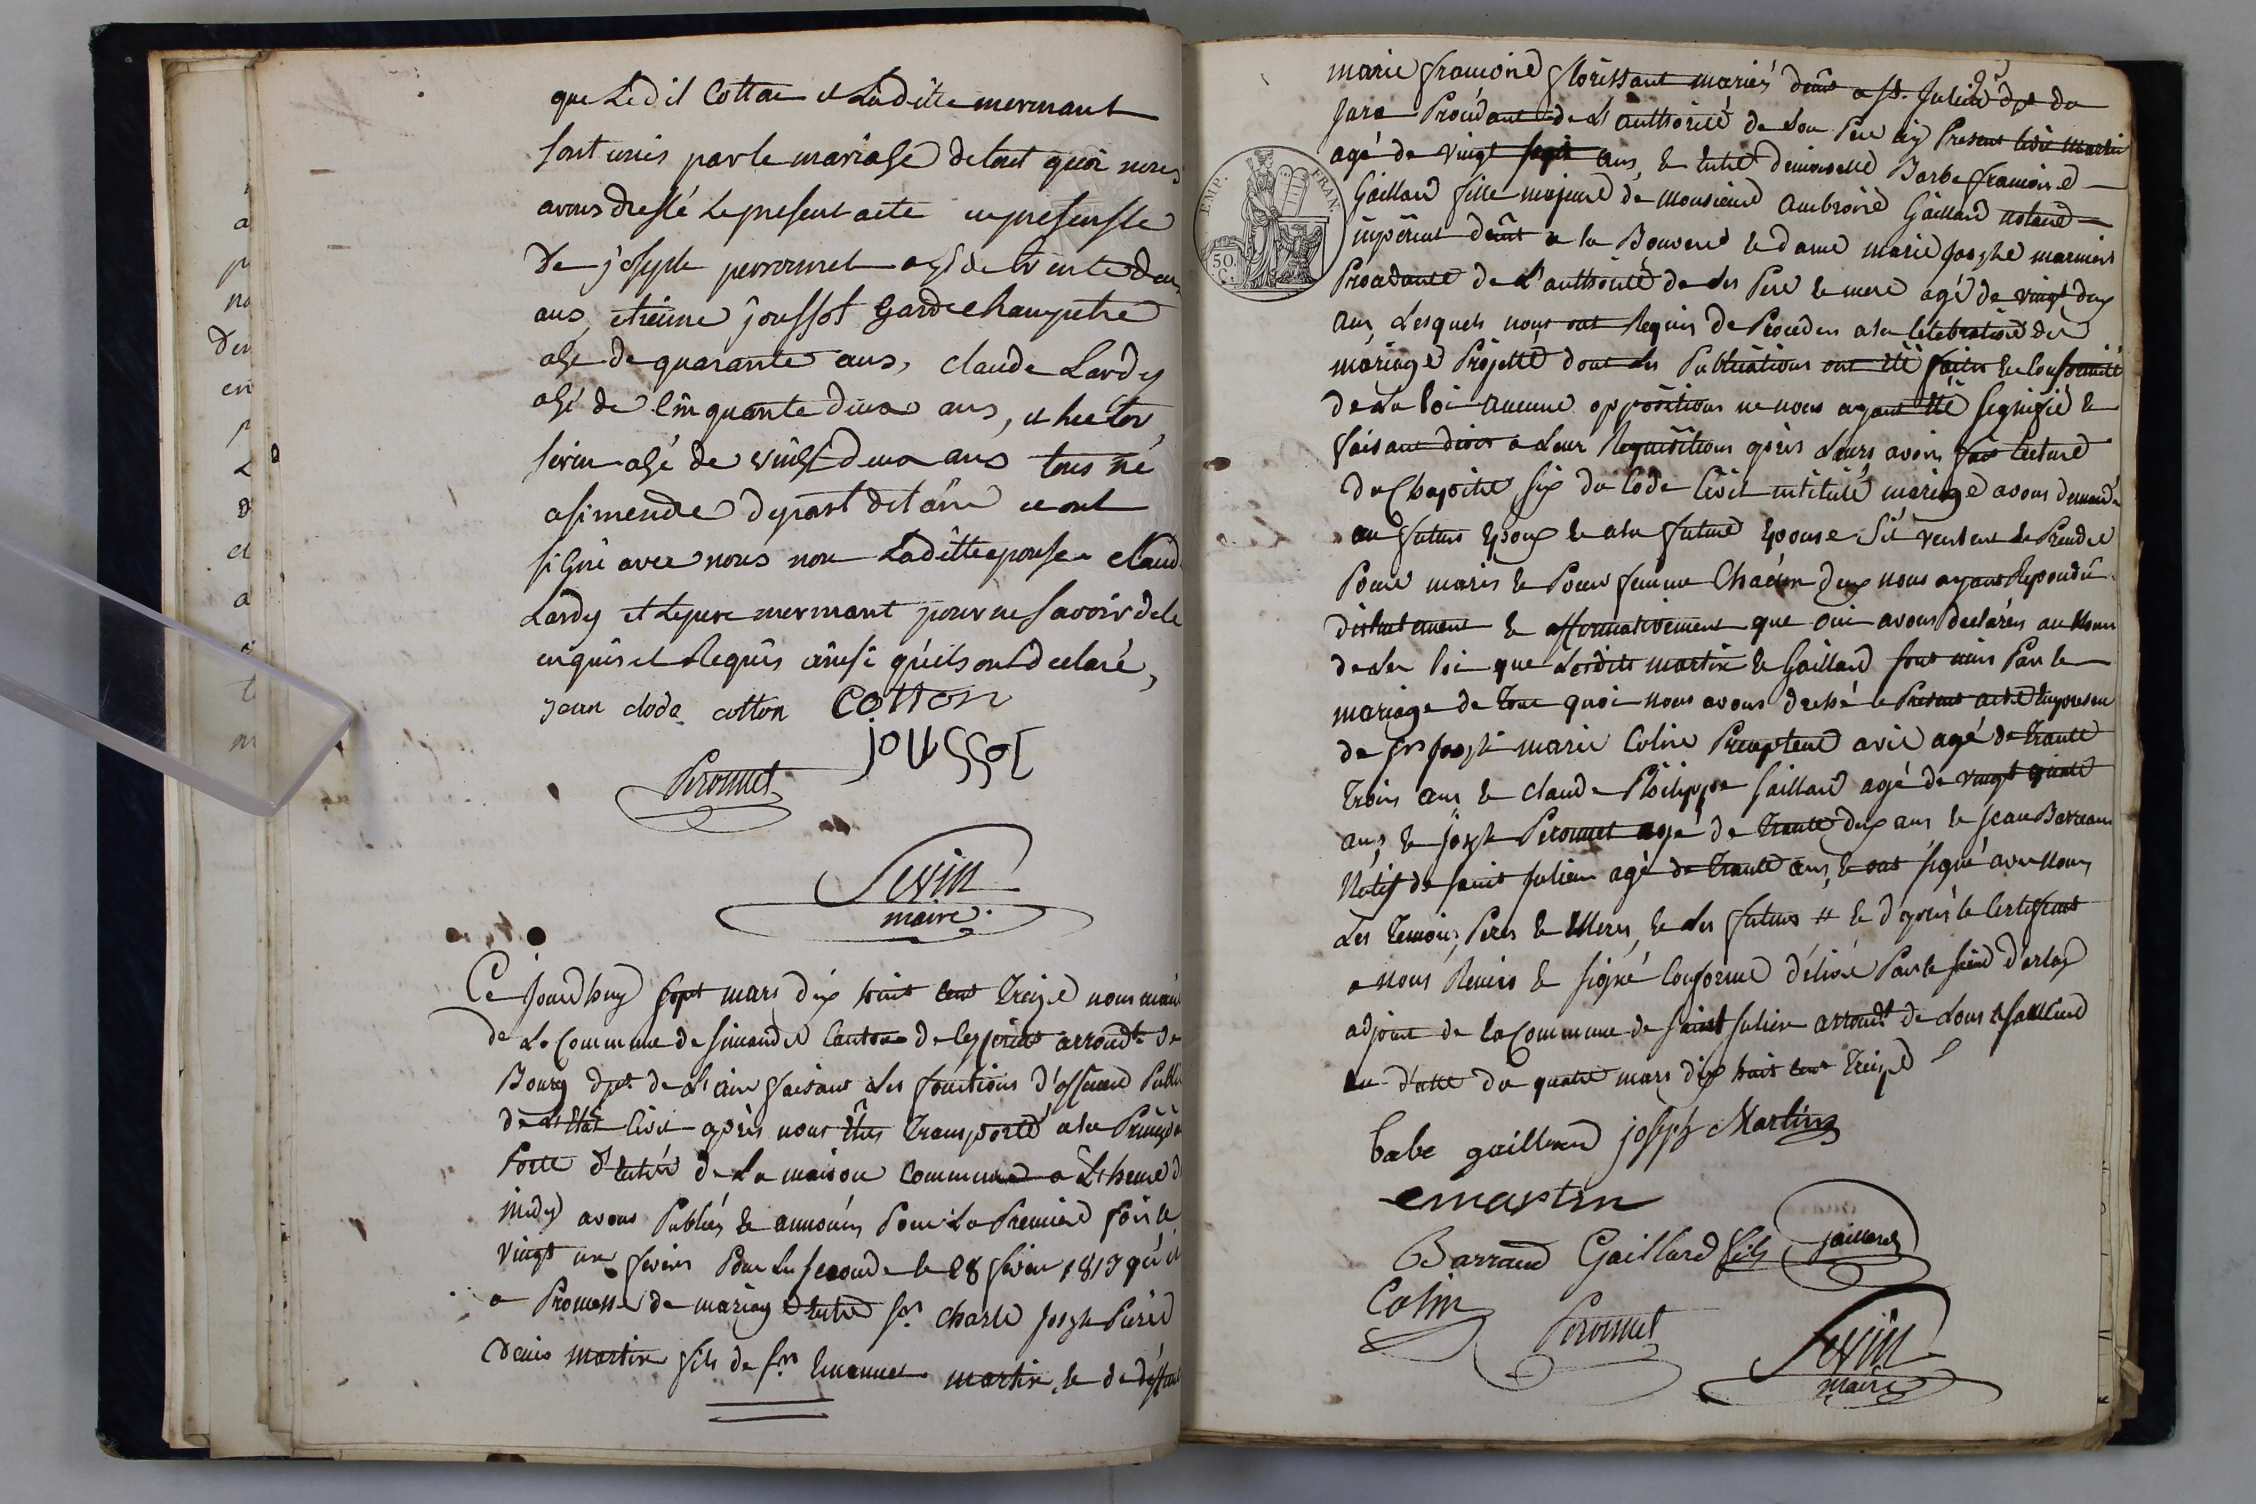 que Le dit Cotton et Laditte mermant
sont unis par le mariage de tout quoi nous
avons dressé le present acte en presense
De joseph perronnet agé de trente deux
ans, etienne joussot garde champetre
agé de quarante ans, claude Lardy
agé de cinquante deux ans, et hector
sevin agé de vingt deux ans tous né
a simendre depart de l'ain ce ont
signé avec nous non Laditte epouse claude
Lardy et le pere mermant pour ne savoir de le
enquis et Requis ainsi qu'ils ont declaré,
jean clode cotton Cotton
joussot
Peronnet
Sevin
maire
Ce jourd'huy sept mars dix huit cent treize nous maire
de La Commune de simandre Canton de ceyzeriat arrondt de
Bourg dpt de L'ain faisant Les fonctions d'officier Public
de L'Etat Civil après nous êtres transporté a la Principale
Porte d'Entré de La maison Commune a L'heure de
midy avons Publiés & annoncés Pour La Premiere fois le
vingt un fevrier Pour La seconde le 28 fevrier 1813 qu'il
a Promesse de mariage Entre sr. Charle Joseph Pierre
Denis martin fils de sr. Emanuel martin & de deffunte
marie francoise florissant mariés demt a St. Julien dpt du
Jura Procédant de L'authorité de son Pere ici Present ledit Martin
agé de vingt sept ans, & entre demoiselle Barbe francoise
Gaillard fille majeure de Monsieur Ambroise Gaillard notaire
impérial demt a la Bouverie & dame marie Josephe marinier
Procedante de L'authorité de ses Pere & mere agé de vingt deux
ans, Lesquels nous ont Requis de Proceder a la Celebration du
mariage Projetté dont Les Publications ont été faites en Conformité
de La Loi aucune oppositions ne nous ayant été signifié &
faisant droit a Leur Requisitions après Leurs avoir fait Lecture
du Chapitre six du Code Civil intitulé mariage avons demandé
au futurs Epoux & a la future Epouse S'il veulent se Prendre
Pour maris & Pour femme Chacun deux nous ayant Repondu
distinctement & affirmativement que oui avons declarés au Nom
de La Loi que Lesdits martin & Gaillard sont unis Par le
mariage de tout quoi nous avons dressé le Present acte En presence
de sr. Joseph marie Colin Precepteur avie agé de trente
trois ans & claude Philippe Gaillard agé de vingt quatre
ans & Joseph Peronnet agé de trente deux ans & Jean Barraux
Natif de saint Julien agé de trente ans, & ont signé avec Nous
Les temoins, Peres & Meres, & Les futurs // & d'après le Certificat
a nous Remis & signé Conforme délivré Par le sieur d'arlay
adjoint de la Commune de saint Julien arrondt de Lons Le Saulnier
en datte du quatre mars dix huit cent treize
babe gaillard joseph Martin
emartin
Barraud Gaillard fils gaillard
Colin Peronnet Sevin
maire
EMP. FRAN.
50.
C.